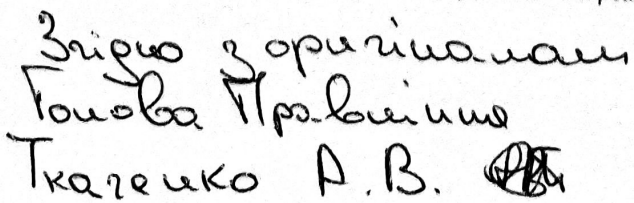 Згідно з оригіналом
Голова Правління
Ткаченко А.В.